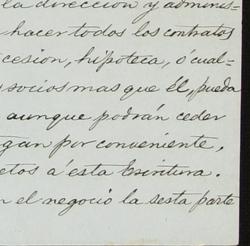 la direccion y adminis=
hacer todos los contratos
cesion, hipoteca, ó cual=
socios mas que él, pueda
aunque podrán ceder
gan por conveniente,
etos á esta Escritura.
n el negocio la sesta parte